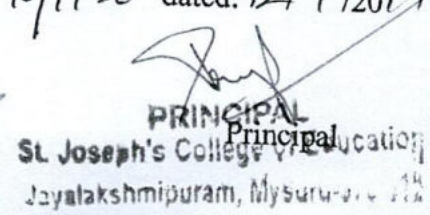 dated:
PRINCIPAL
Principal
St. Joseph's College of Education
Jayalakshmipuram, Mysuru